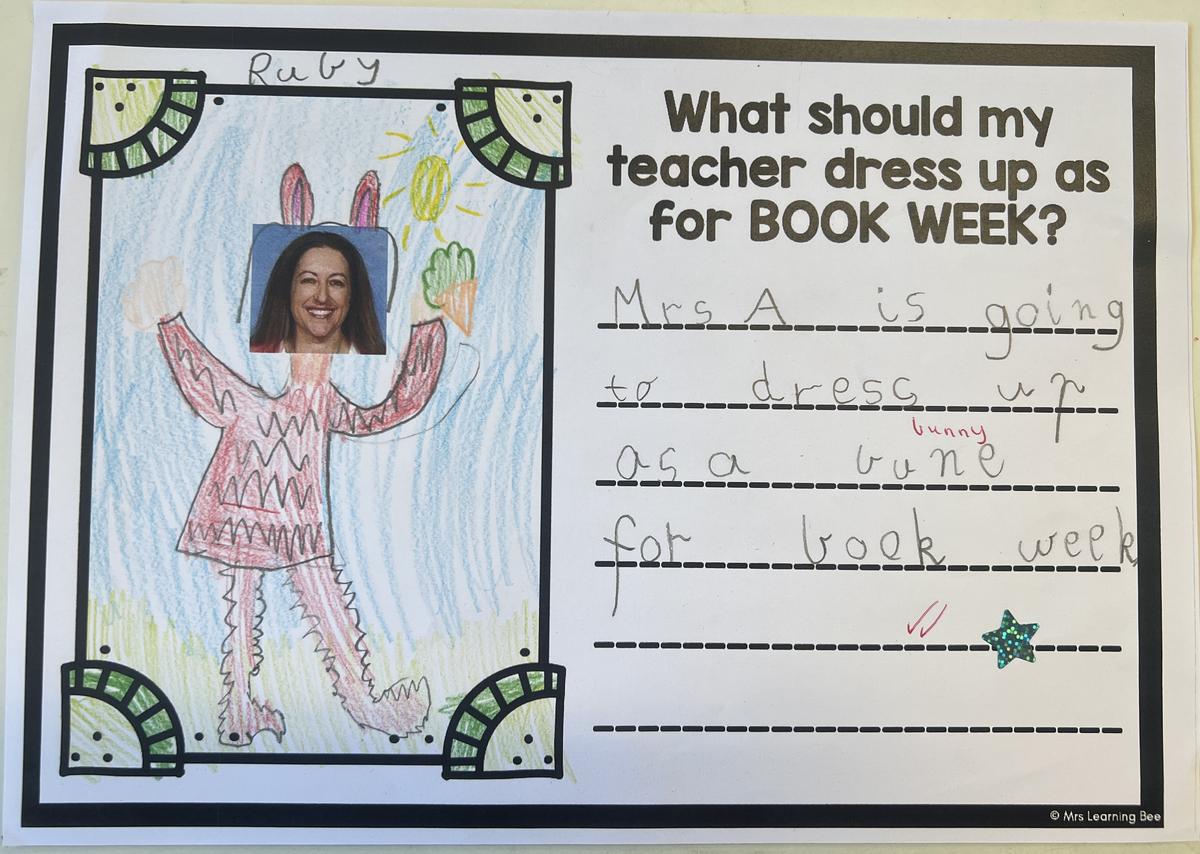 Ruby
What should my
teacher dress up as
for BOOK WEEK?
Mrs A is going
to dress up
bunny
as a bune
for book week
© Mrs Learning Bee